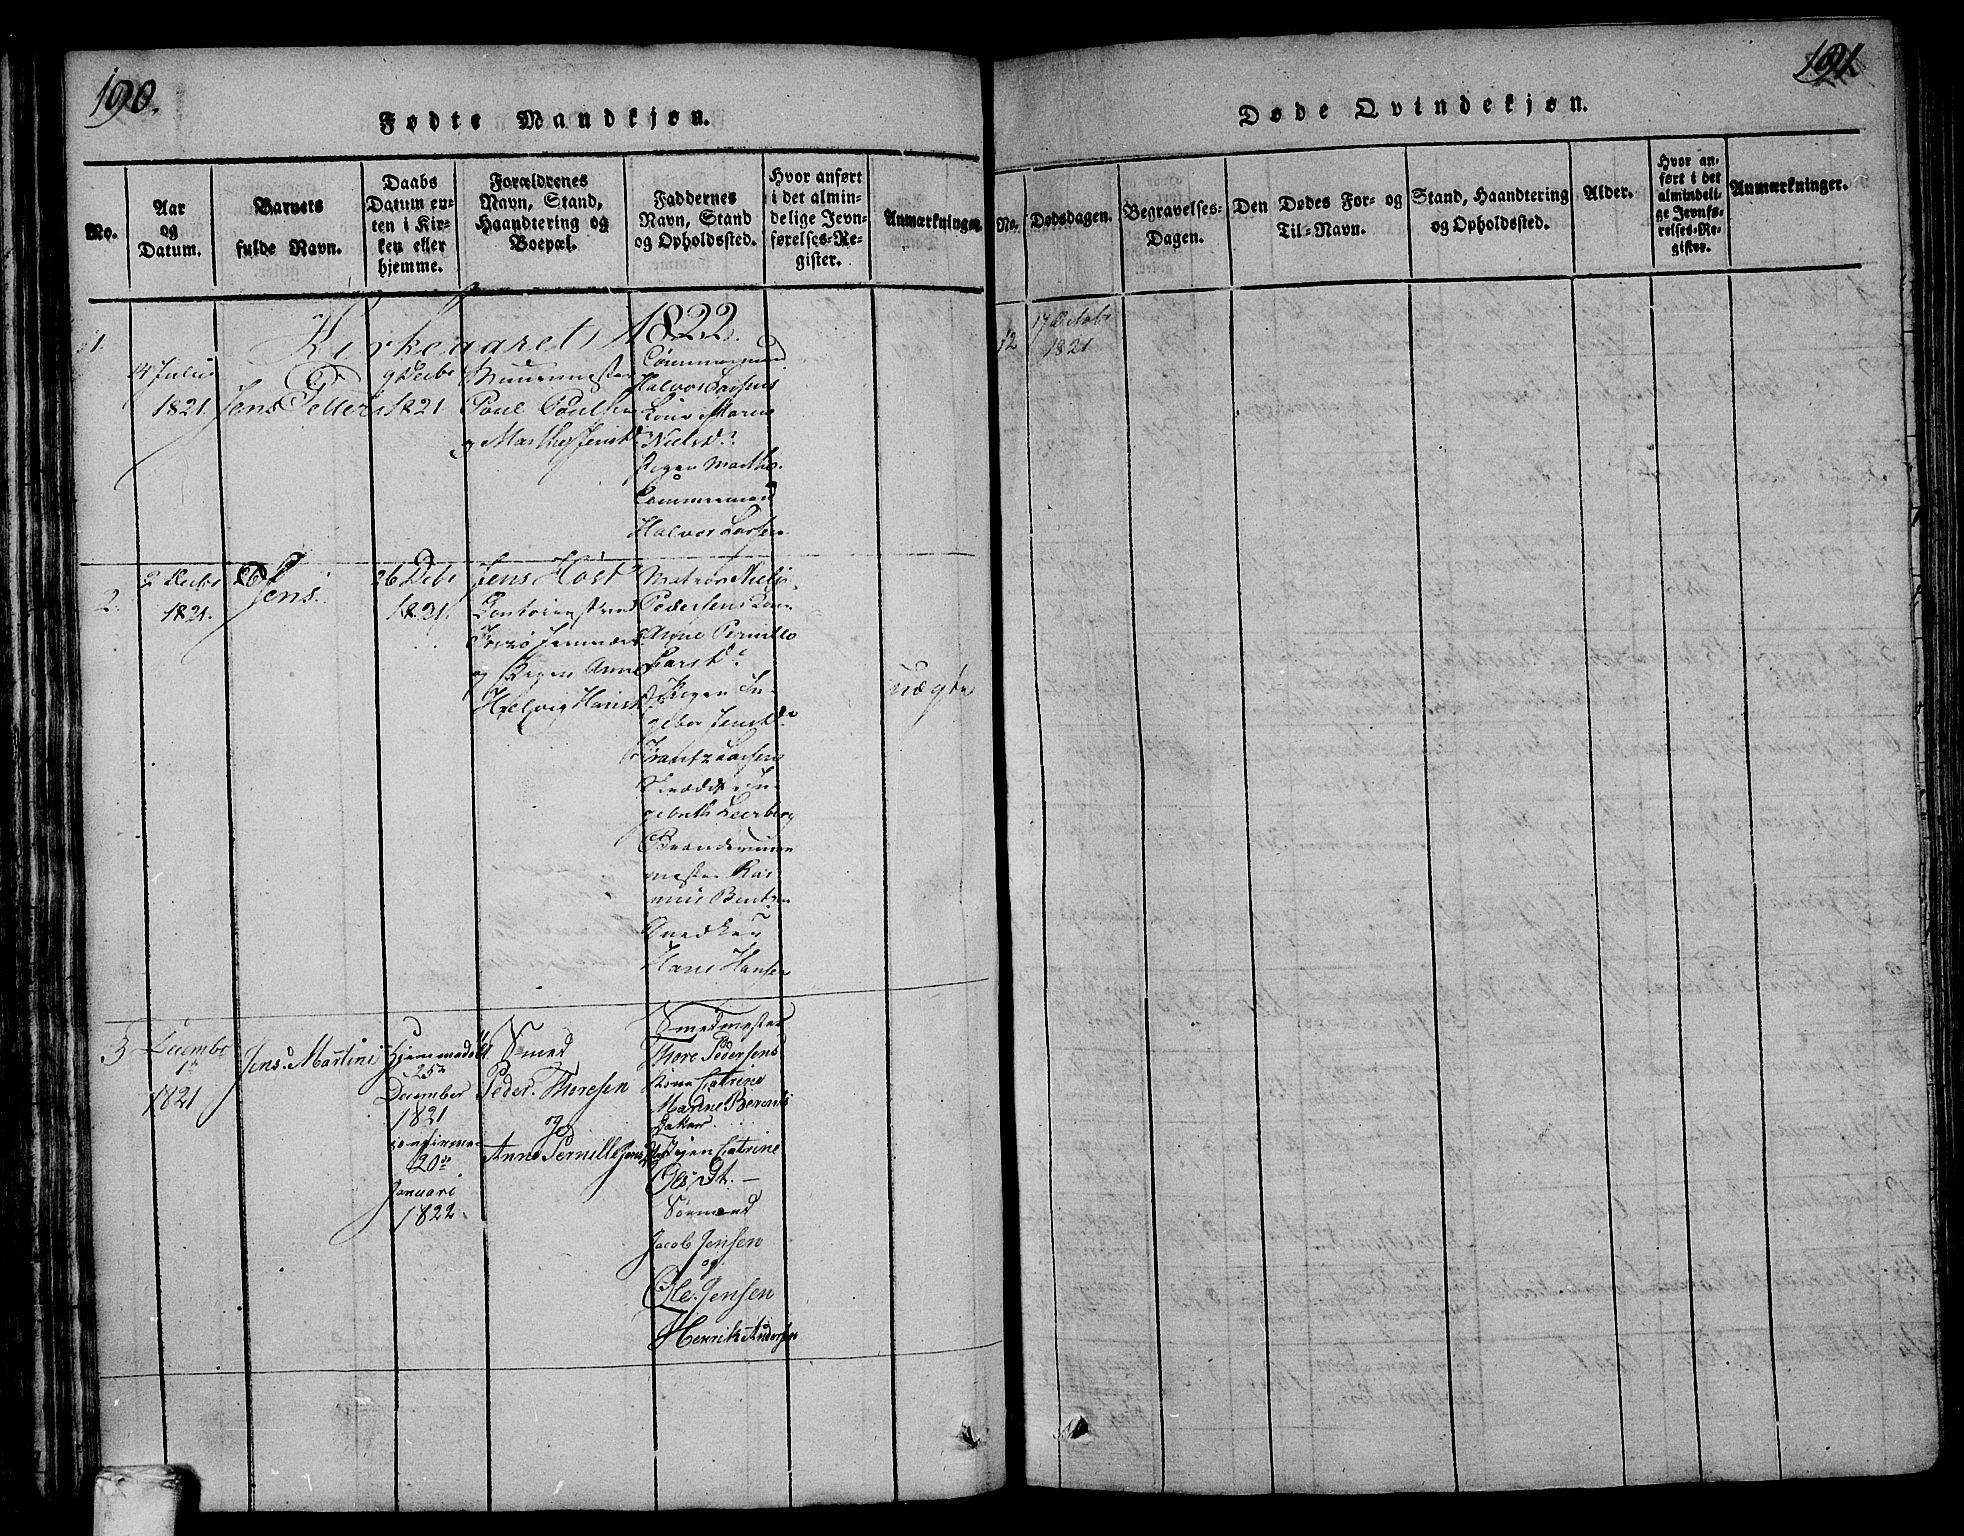 190.
Fødte Mandkjøn.
No.
Aar
og
Datum.
Barnets
fulde Navn.
Daabs
Datum en-
ten i Kir-
ken eller
hjemme.
Forældrenes
Navn, Stand,
Haandtering og
Boepæl.
Faddernes
Navn, Stand
og Opholdssted.
Hvor anført
i det almin-
delige Jevn-
førelses-Re-
gister.
Anmærkninger.
Kirkeaaret 1822.
1.
14 Julii
1821.
Jens Petter
9 Decbr
1821
Muurmester
Poul Poulsen
og Marthe Jensd.
Halvor Larsens
Kone Maren
Nielsd.
Pigen Marthe
Halvor Larsen
2.
2 Decbr
1821.
Jens
26 Debr
1821
Jens Høst
og Pigen Anne
Helvig Hansd
Matros Niels
Pedersens Kone
Anne Pernille
Larsd.
Pigen In-
gebor Jensd.
Frantz Larsens
mester Ras
mus Bentzen
Snedker
Hans Hansen
uægte
3
Decembr
1r
1821
Jens Martin
hjemmedøbt
25de
December
1821
confirme-
20de
Januari
1822.
Smed
Peder Thoresen
og
Anne Pernille Jensd
Smedmester
Thore Pedersens
Kone Catrine
Marine Berents
datter
Pigen Catrine
Olsdt. —
Sømænd
Jacob Jensen
og
Ole Jensen
Henrik Andersen
191.
Døde Qvindekjøn.
No.
Dødsdagen.
Begravelses-
Dagen.
Den Dødes For- og
Til-Navn.
Stand, Haandtering
og Opholdssted.
Alder.
Hvor an-
ført i det
almindeli-
ge Jevnfø-
relses-Re-
gister.
Anmærkninger.
12
17 Octobr
1821